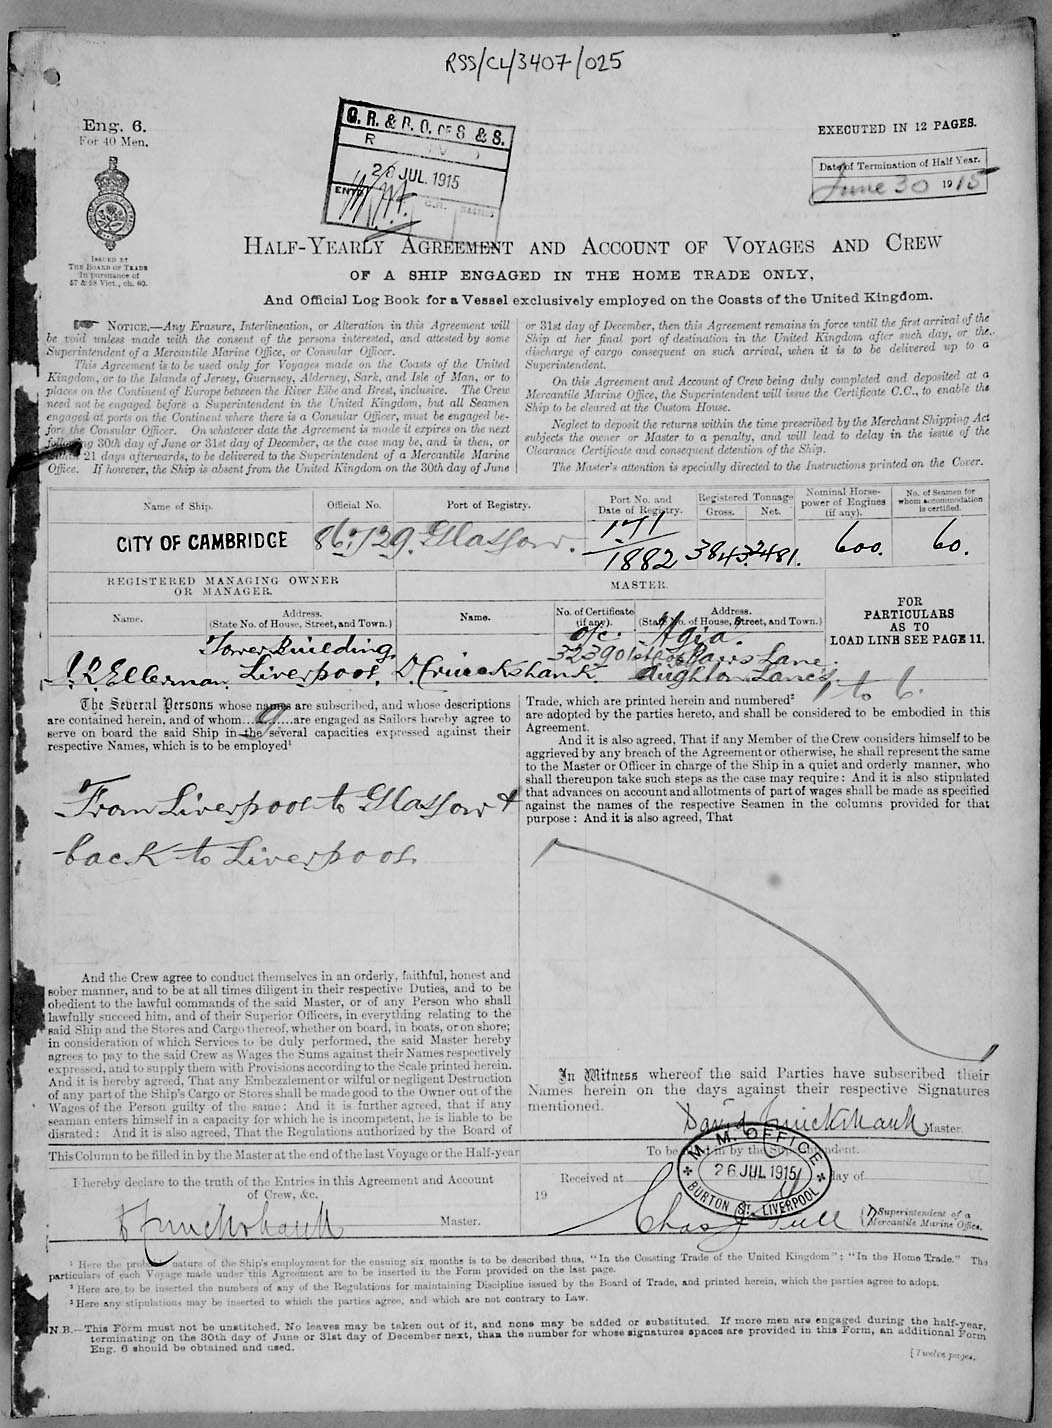 RSS/CL/3407/025
Eng. 6.
For 40 Men.
ISSUED BY
THE BOARD OF TRADE
In pursuance of
57 & 58 Vict., ch. 60.
G. R. & P. O. OF S & S.
28 JUL. 1915
EXECUTED IN 12 PAGES.
Date of Termination of Half Year.
June 30 1915
HALF-YEARLY AGREEMENT AND ACCOUNT OF VOYAGES AND CREW
OF A SHIP ENGAGED IN THE HOME TRADE ONLY,
And Official Log Book for a Vessel exclusively employed on the Coasts of the United Kingdom.
NOTICE.—Any Erasure, Interlineation, or Alteration in this Agreement will
be void unless made with the consent of the persons interested, and attested by some
Superintendent of a Mercantile Marine Office, or Consular Officer.
This Agreement is to be used only for Voyages made on the Coasts of the United
Kingdom, or to the Islands of Jersey, Guernsey, Alderney, Sark, and Isle of Man, or to
places on the Continent of Europe between the River Elbe and Brest, inclusive. The Crew
need not be engaged before a Superintendent in the United Kingdom, but all Seamen
engaged at ports on the Continent where there is a Consular Officer, must be engaged be-
fore the Consular Officer. On whatever date the Agreement is made it expires on the next
following 30th day of June or 31st day of December, as the case may be, and is then, or
within 21 days afterwards, to be delivered to the Superintendent of a Mercantile Marine
Office. If however, the Ship is absent from the United Kingdom on the 30th day of June
or 31st day of December, then this Agreement remains in force until the first arrival of the
Ship at her final port of destination in the United Kingdom after such day, or the
discharge of cargo consequent on such arrival, when it is to be delivered up to a
Superintendent.
On this Agreement and Account of Crew being duly completed and deposited at a
Mercantile Marine Office, the Superintendent will issue the Certificate C.C., to enable the
Ship to be cleared at the Custom House.
Neglect to deposit the returns within the time prescribed by the Merchant Shipping Act
subjects the owner or Master to a penalty, and will lead to delay in the issue of the
Clearance Certificate and consequent detention of the Ship.
The Master's attention is specially directed to the Instructions printed on the Cover.
Name of Ship. Official No. Port of Registry. Port No. and Date of Registry. Registered Tonnage Gross. Net. Nominal Horse-power of Engines (if any). No. of Seamen for whom accommodation is certified.
CITY OF CAMBRIDGE 86.129. Glasgow. 171/1882 3843. 2481. 600. 60.
REGISTERED MANAGING OWNER OR MANAGER. MASTER.
Name. Address. (State No. of House, Street, and Town.) Name. No. of Certificate (if any). Address. (State No. of House, Street, and Town.)
FOR
PARTICULARS
AS TO
LOAD LINE SEE PAGE 11.
Tower Building,
J. R. Ellerman. Liverpool. D. Cruickshank.
Lane.
Aughton Lancs.
The Several Persons whose names are subscribed, and whose descriptions
are contained herein, and of whom 9 are engaged as Sailors hereby agree to
serve on board the said Ship in the several capacities expressed against their
respective Names, which is to be employed¹
From Liverpool to Glasgow &
back to Liverpool
And the Crew agree to conduct themselves in an orderly, faithful, honest and
sober manner, and to be at all times diligent in their respective Duties, and to be
obedient to the lawful commands of the said Master, or of any Person who shall
lawfully succeed him, and of their Superior Officers, in everything relating to the
said Ship and the Stores and Cargo thereof, whether on board, in boats, or on shore;
in consideration of which Services to be duly performed, the said Master hereby
agrees to pay to the said Crew as Wages the Sums against their Names respectively
expressed, and to supply them with Provisions according to the Scale printed herein.
And it is hereby agreed, That any Embezzlement or wilful or negligent Destruction
of any part of the Ship's Cargo or Stores shall be made good to the Owner out of the
Wages of the Person guilty of the same: And it is further agreed, that if any
seaman enters himself in a capacity for which he is incompetent, he is liable to be
disrated: And it is also agreed, That the Regulations authorized by the Board of
Trade, which are printed herein and numbered² 1 to 6.
are adopted by the parties hereto, and shall be considered to be embodied in this
Agreement.
And it is also agreed, That if any Member of the Crew considers himself to be
aggrieved by any breach of the Agreement or otherwise, he shall represent the same
to the Master or Officer in charge of the Ship in a quiet and orderly manner, who
shall thereupon take such steps as the case may require: And it is also stipulated
that advances on account and allotments of part of wages shall be made as specified
against the names of the respective Seamen in the columns provided for that
purpose: And it is also agreed, That
In Witness whereof the said Parties have subscribed their
Names herein on the days against their respective Signatures
mentioned.
David Cruickshank Master.
This Column to be filled in by the Master at the end of the last Voyage or the Half-year
I hereby declare to the truth of the Entries in this Agreement and Account
of Crew, &c.
D Cruickshank Master.
To be filled in by the Superintendent.
Received at day of
19
M. M. OFFICE
26 JUL 1915
BURTON ST. LIVERPOOL
Superintendent of a
Mercantile Marine Office.
¹ Here the probable nature of the Ship's employment for the ensuing six months is to be described thus, "In the Coasting Trade of the United Kingdom"; "In the Home Trade." The
particulars of each Voyage made under this Agreement are to be inserted in the Form provided on the last page.
² Here are to be inserted the numbers of any of the Regulations for maintaining Discipline issued by the Board of Trade, and printed herein, which the parties agree to adopt.
³ Here any stipulations may be inserted to which the parties agree, and which are not contrary to Law.
N.B.—This Form must not be unstitched. No leaves may be taken out of it, and none may be added or substituted. If more men are engaged during the half-year,
terminating on the 30th day of June or 31st day of December next, than the number for whose signatures spaces are provided in this Form, an additional Form
Eng. 6 should be obtained and used.
[Twelve pages.